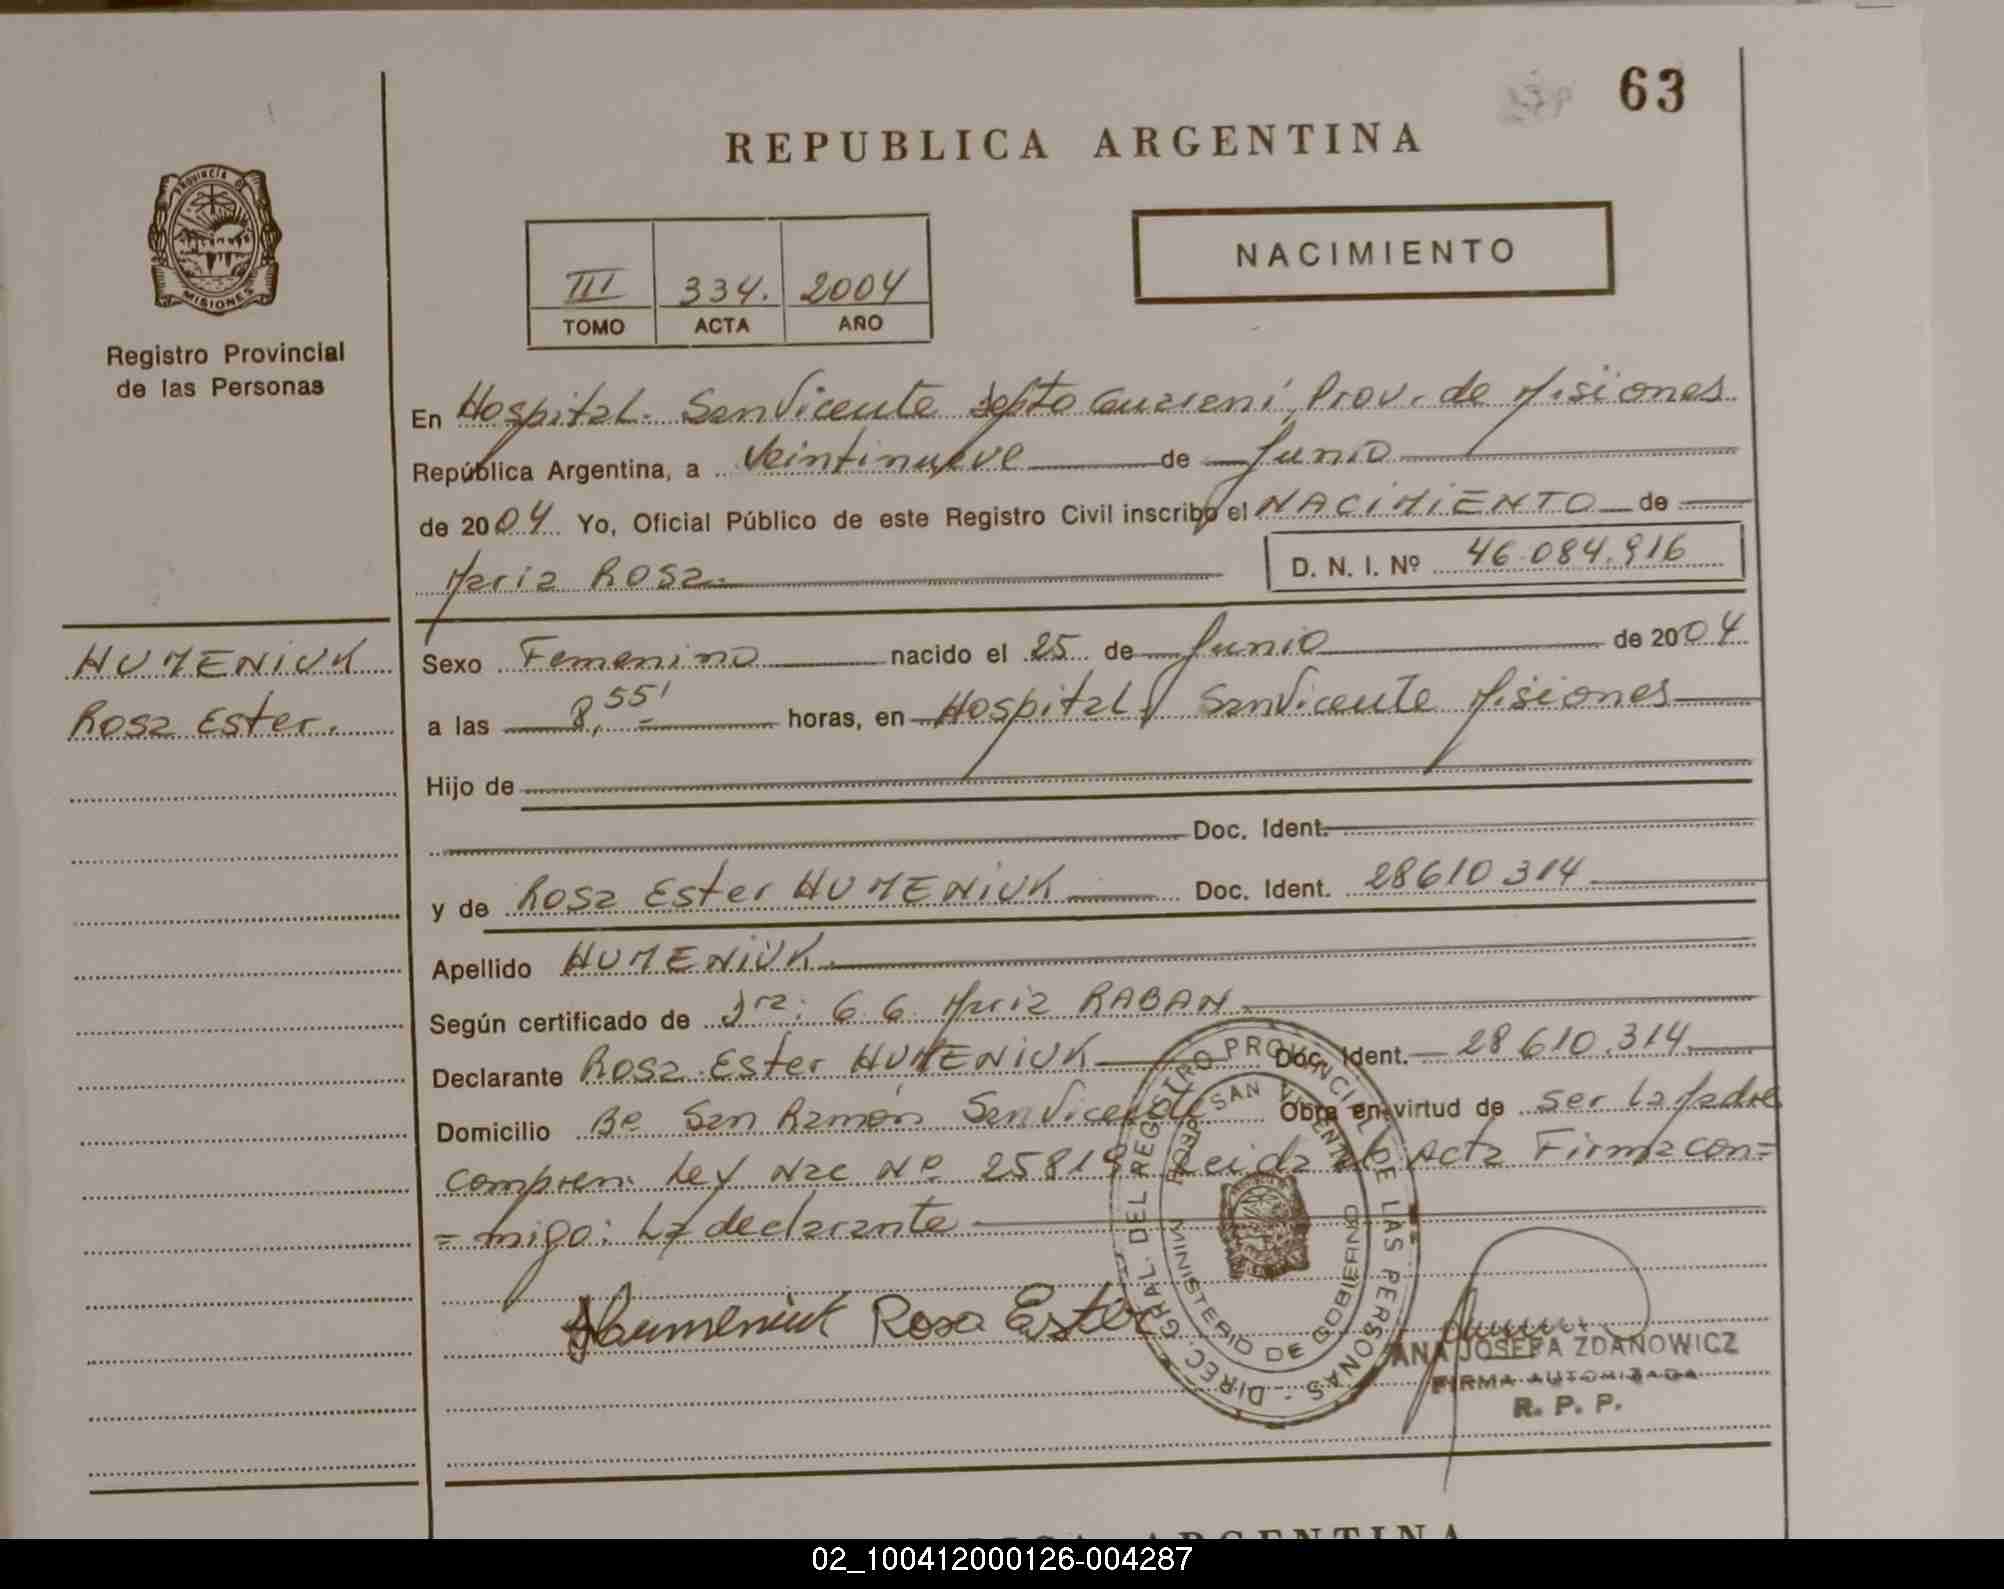 63
REPUBLICA ARGENTINA
PROVINCIA DE
MISIONES
Registro Provincial
de las Personas
III 334. 2004
TOMO ACTA AÑO
NACIMIENTO
En Hospital. San Vicente Depto Guarani, Prov. de Misiones
República Argentina, a Veintinueve de Junio
de 2004 Yo, Oficial Público de este Registro Civil inscribo el NACIMIENTO de
Maria Rosa
D. N. I. Nº 46.084.916
HUMENIUK
Rosa Ester.
Sexo Femenino nacido el 25 de Junio de 2004
a las 8,55' horas, en Hospital, San Vicente Misiones
Hijo de
Doc. Ident.
y de Rosa Ester HUMENIUK Doc. Ident. 28610314
Apellido HUMENIUK
Según certificado de Dra: G. G. Maria RABAN
Declarante Rosa Ester HUMENIUK Doc. Ident. 28610.314
Domicilio Bº San Ramón San Vicente Obra en virtud de ser la Madre
compren. Ley Nac Nº 25819 Leida el Acta Firma con=
=migo: La declarante
Humeniuk Rosa Ester
DIREC. GRAL. DEL REGISTRO PROVINCIAL DE LAS PERSONAS -
HOSP. SAN VICENTE
MINISTERIO DE GOBIERNO
ANA JOSEFA ZDANOWICZ
FIRMA AUTORIZADA
R. P. P.
ARGENTINA
02_100412000126-004287